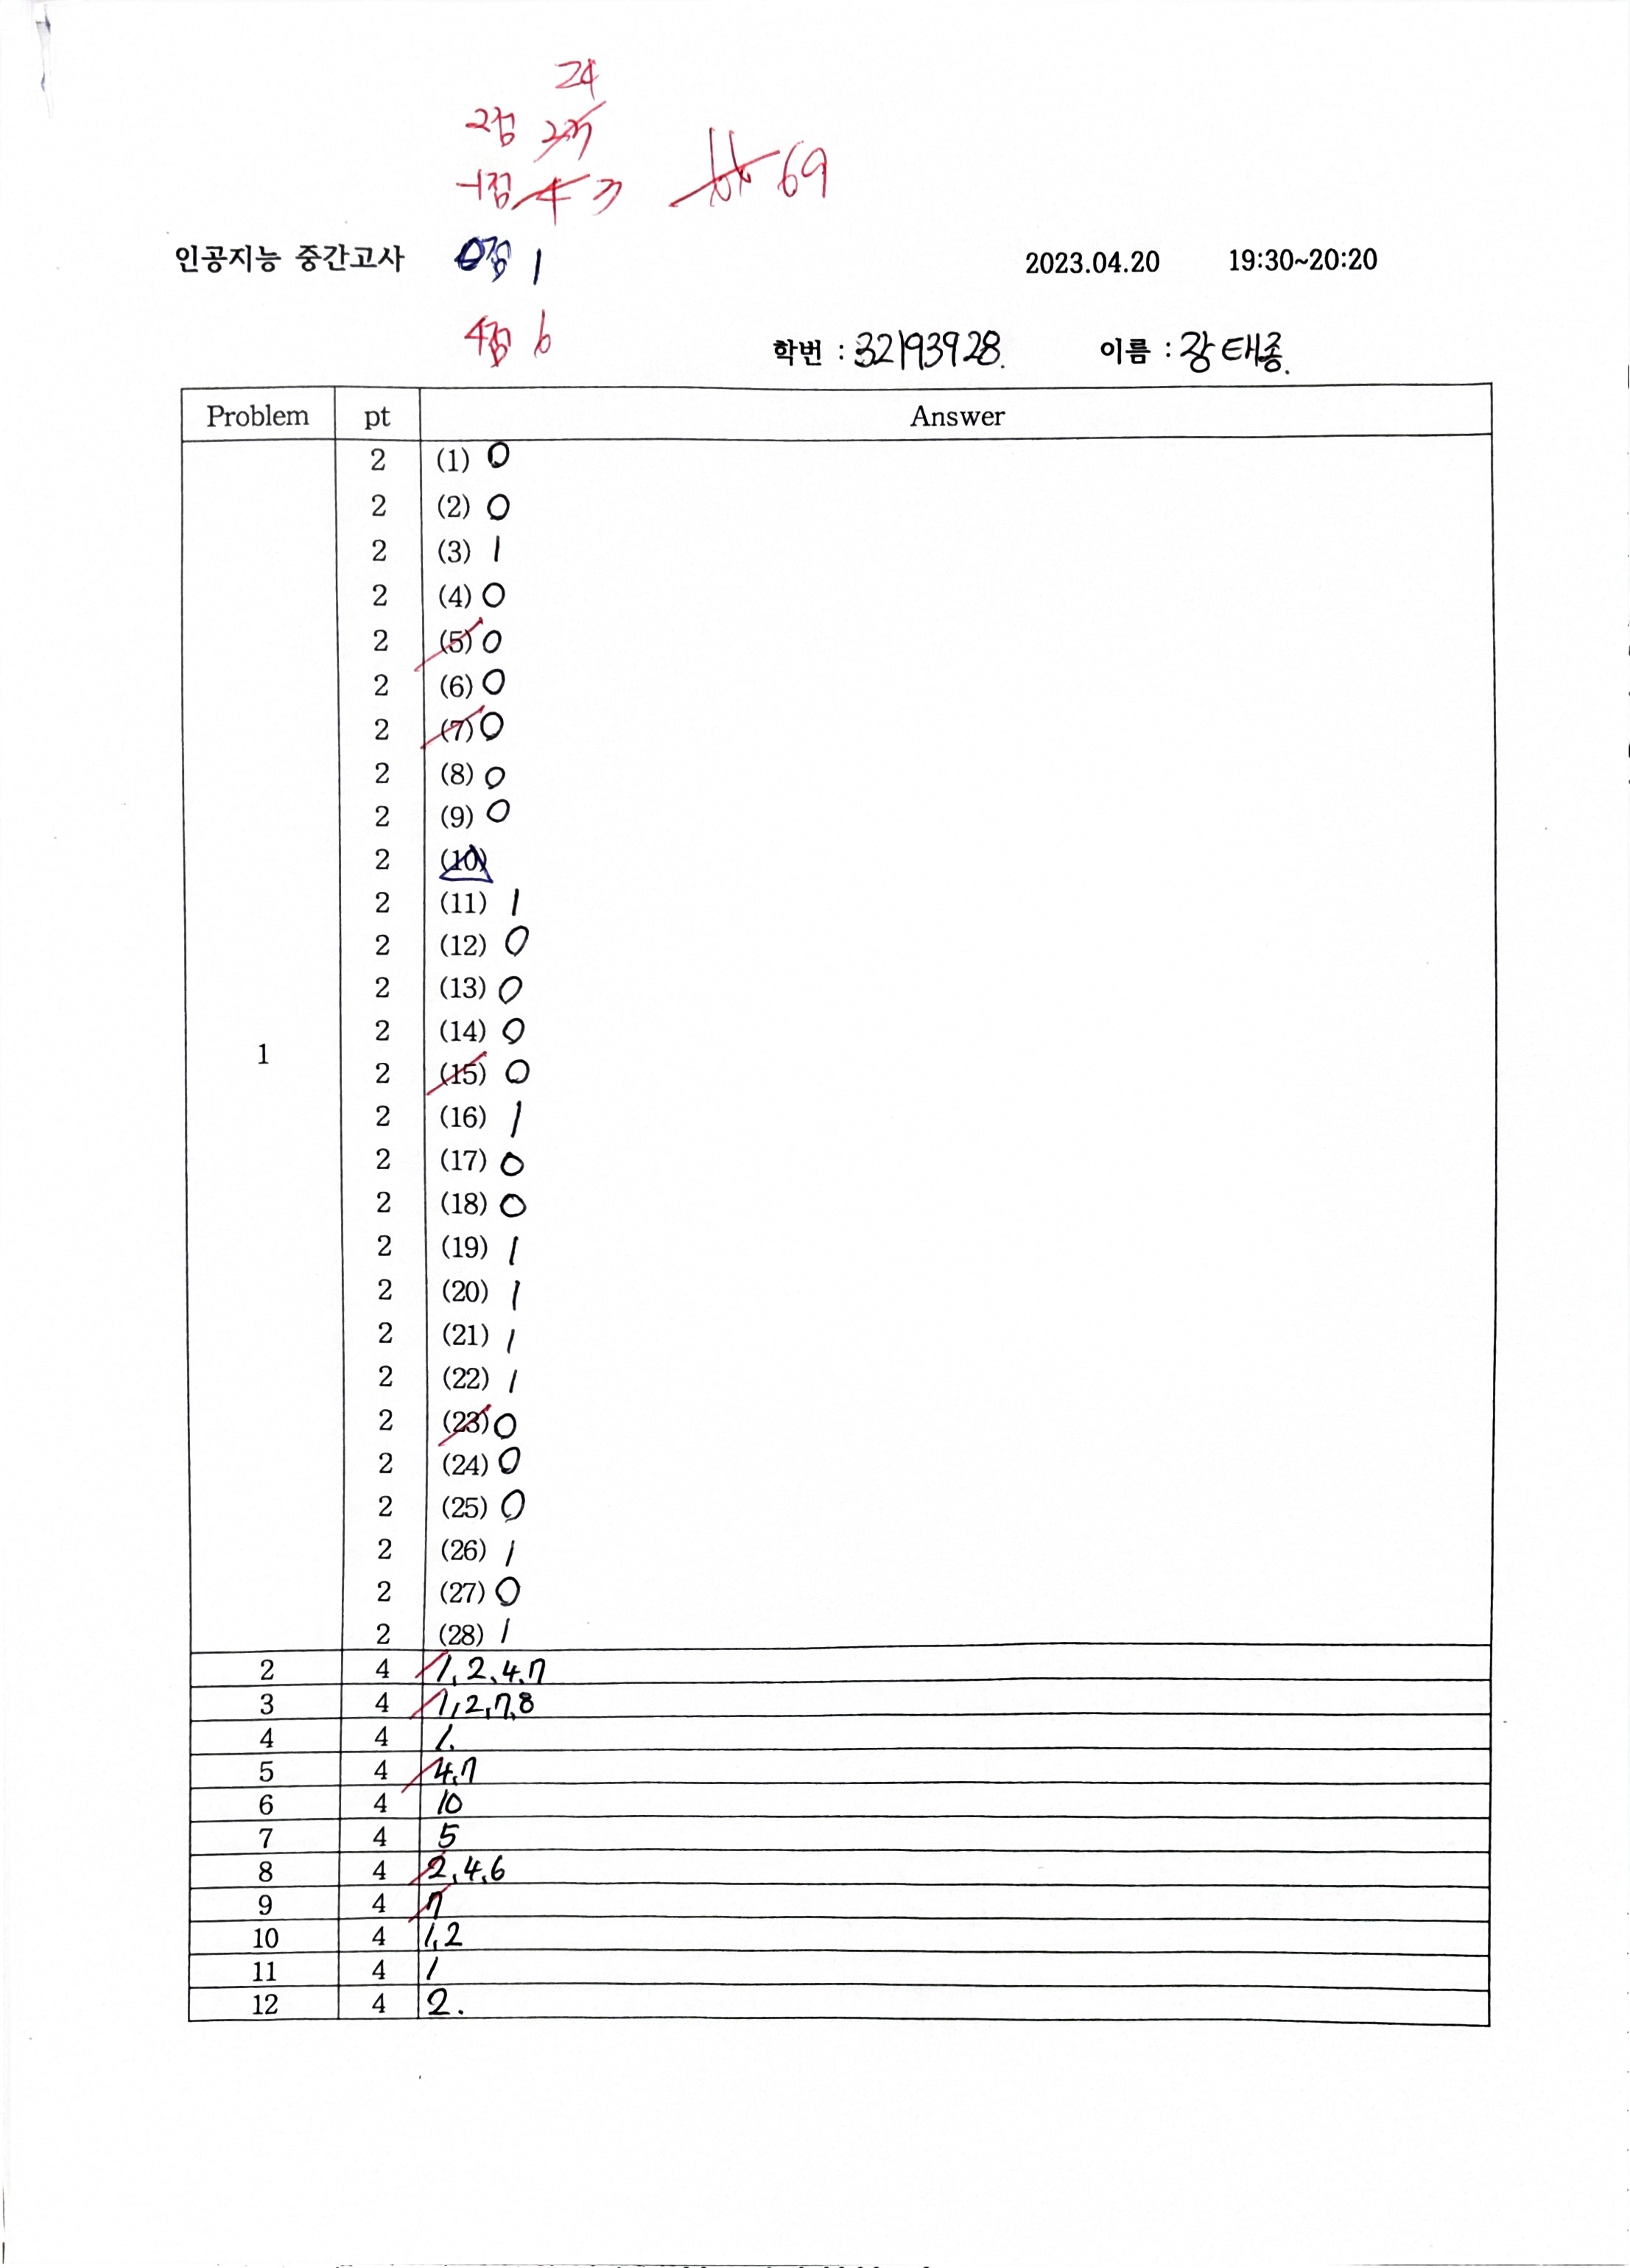 24
2점
-1점 4 3 69
인공지능 중간고사 0점 1 2023.04.20 19:30~20:20
4점 6 학번 : 32193928. 이름 : 장태종.
Problem pt Answer
1
2 (1) 0
2 (2) 0
2 (3) 1
2 (4) 0
2 (5) 0
2 (6) 0
2 (7) 0
2 (8) 0
2 (9) 0
2 (10)
2 (11) 1
2 (12) 0
2 (13) 0
2 (14) 0
2 (15) 0
2 (16) 1
2 (17) 0
2 (18) 0
2 (19) 1
2 (20) 1
2 (21) 1
2 (22) 1
2 (23) 0
2 (24) 0
2 (25) 0
2 (26) 1
2 (27) 0
2 (28) 1
2 4 1, 2, 4, 7
3 4 1, 2, 7, 8
4 4 1.
5 4 4, 7
6 4 10
7 4 5
8 4 2, 4, 6
9 4 7
10 4 1, 2
11 4 1
12 4 2.